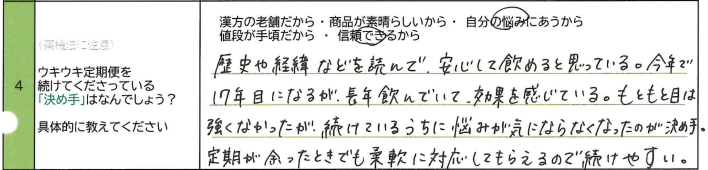 漢方の老舗だから・商品が素晴らしいから・ 自分の悩みにあうから
値段が手頃だから ・ 信頼できるから
(薬機法に注意)
4
ウキウキ定期便を
続けてくださっている
「決め手」はなんでしょう?
具体的に教えてください
歴史や経緯などを読んで、安心して飲めると思っている。今年で
17年目になるが、長年飲んでいて、効果を感じている。もともと目は
強くなかったが、続けているうちに悩みが気にならなくなったのが決め手。
定期が余ったときでも柔軟に対応してもらえるので続けやすい。